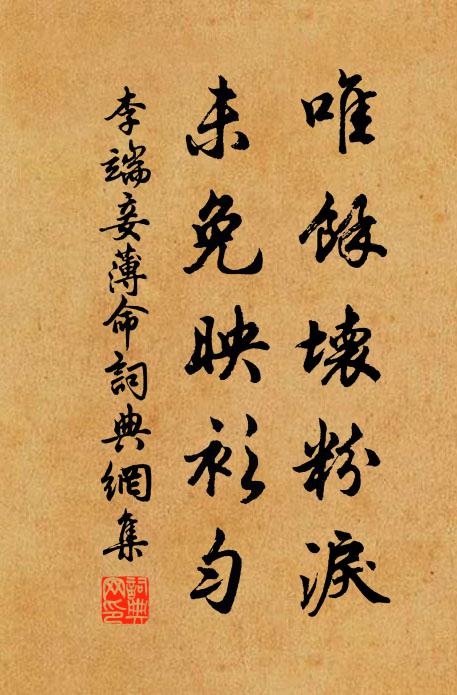 唯餘壞粉淚
未免映衫勻
李端妾薄命詞典網集
詞典網印